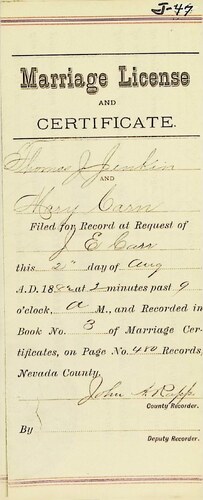 J-47
Marriage License
AND
CERTIFICATE.
Thomas J Jenkin
and
Mary Carn
Filed for Record at Request of
J E Carr
this 2" day of Aug
A.D. 188 at 2 minutes past 9
o'clock, A M., and Recorded in
Book No. 3 of Marriage Cer-
tificates, on Page No. 480 Records,
Nevada County,
John A. Rapp
County Recorder.
By
Deputy Recorder.